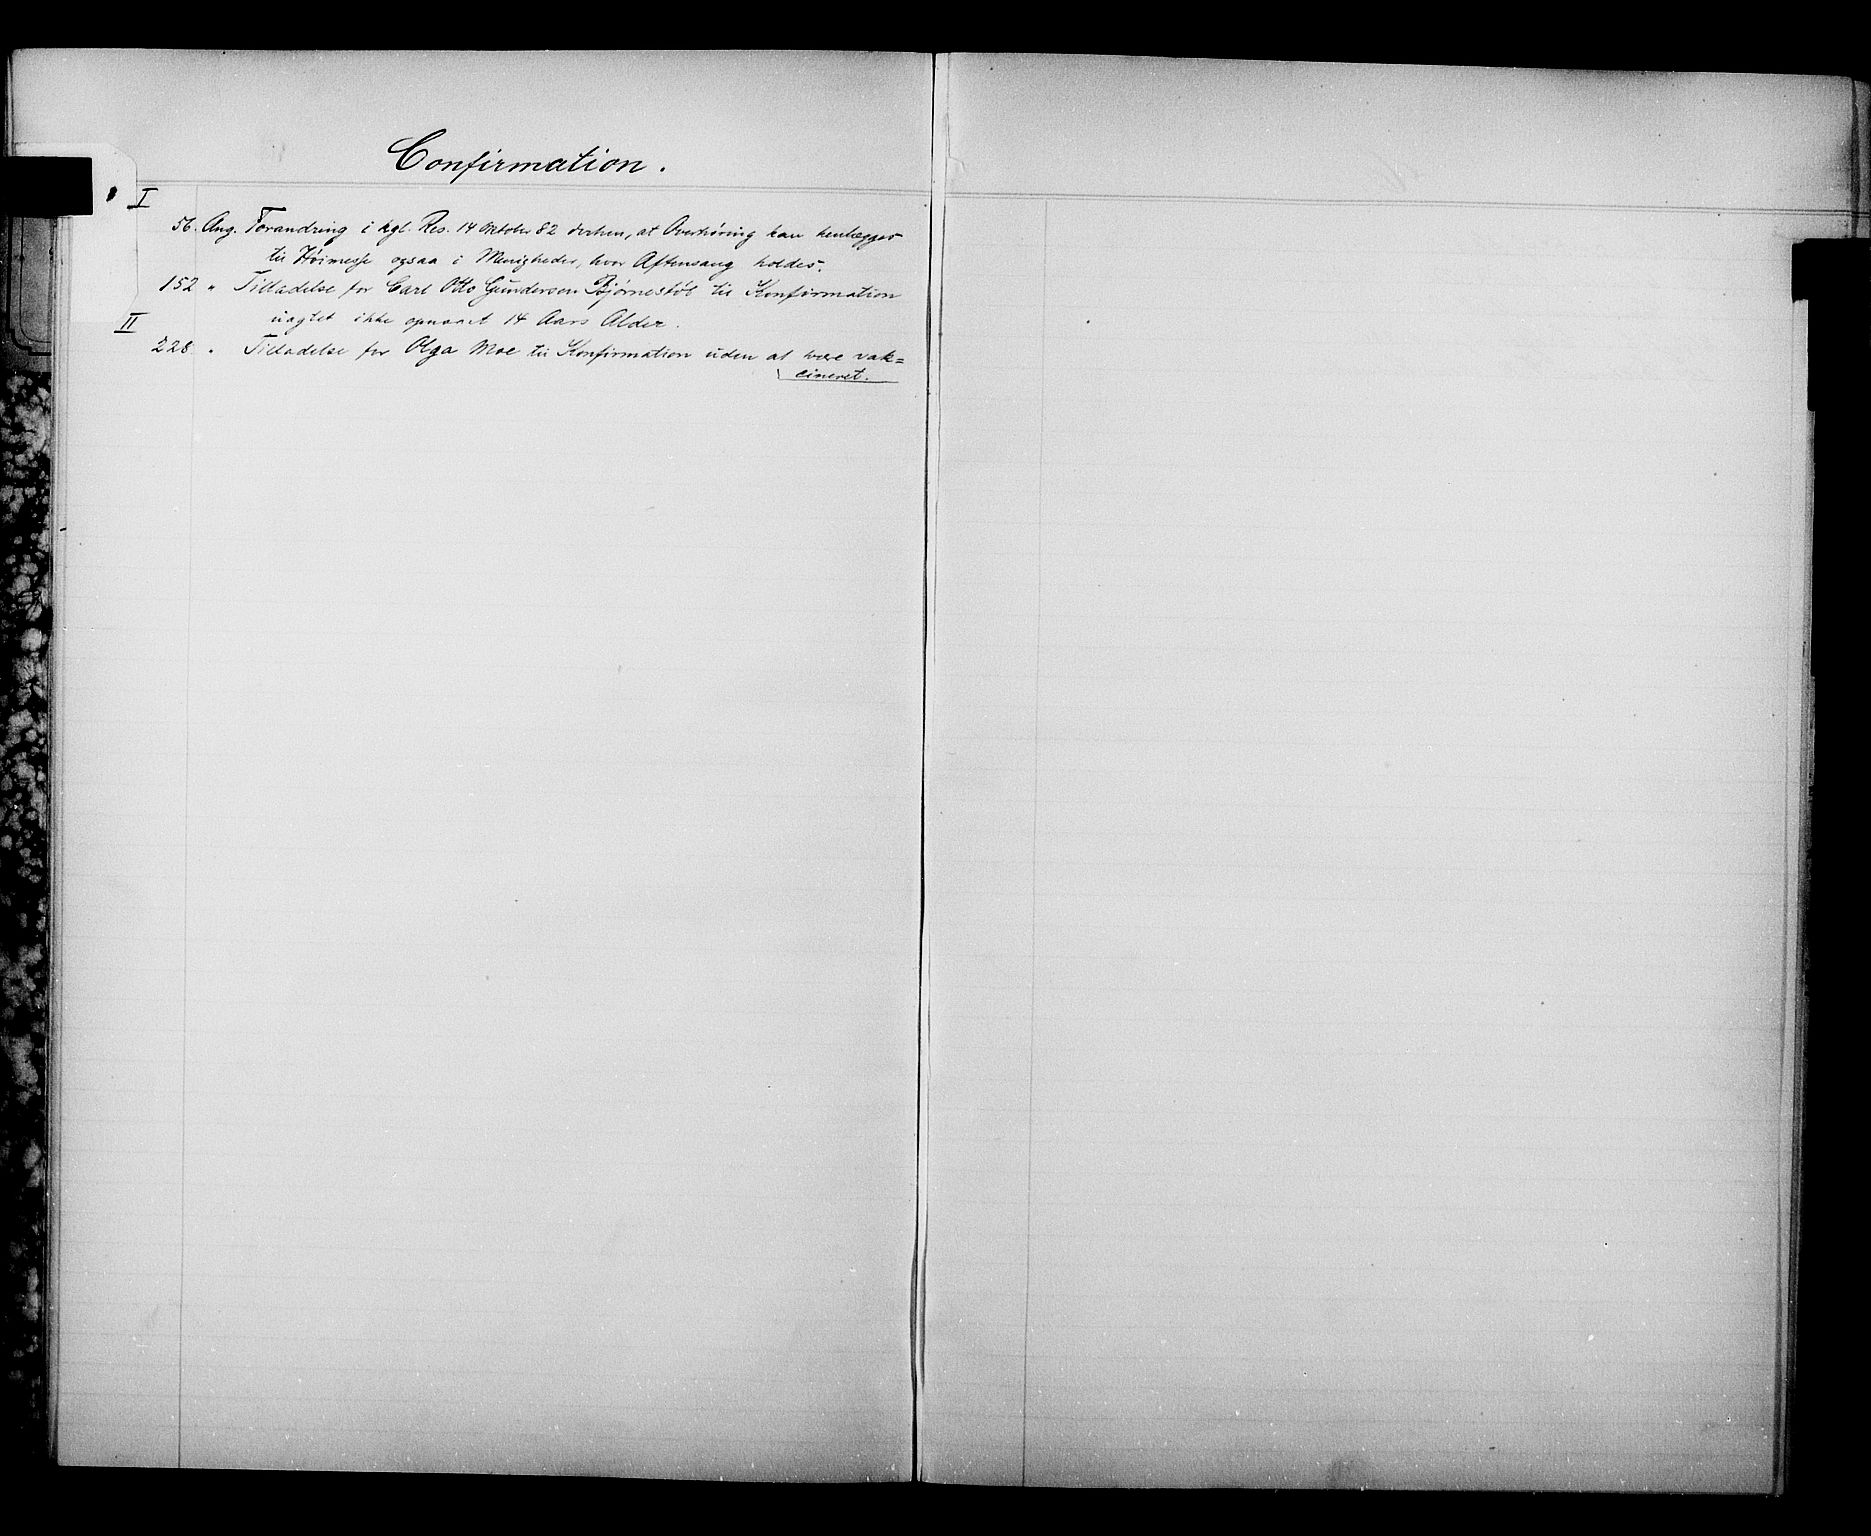 Confirmation.
I
56. Ang. Forandring i kgl. Res. 14 Oktober 82 derhen, at Overhøring kan henlægges
til Høimesse ogsaa i Menigheder, hvor Aftensang holdes.
152 " Tilladelse for Carl Otto Gundersen Bjørnestøl til Konfirmation
uagtet ikke opnaaet 14 Aars Alder.
II
228 " Tilladelse for Olga Moe til Konfirmation uden at være vak=
cineret.